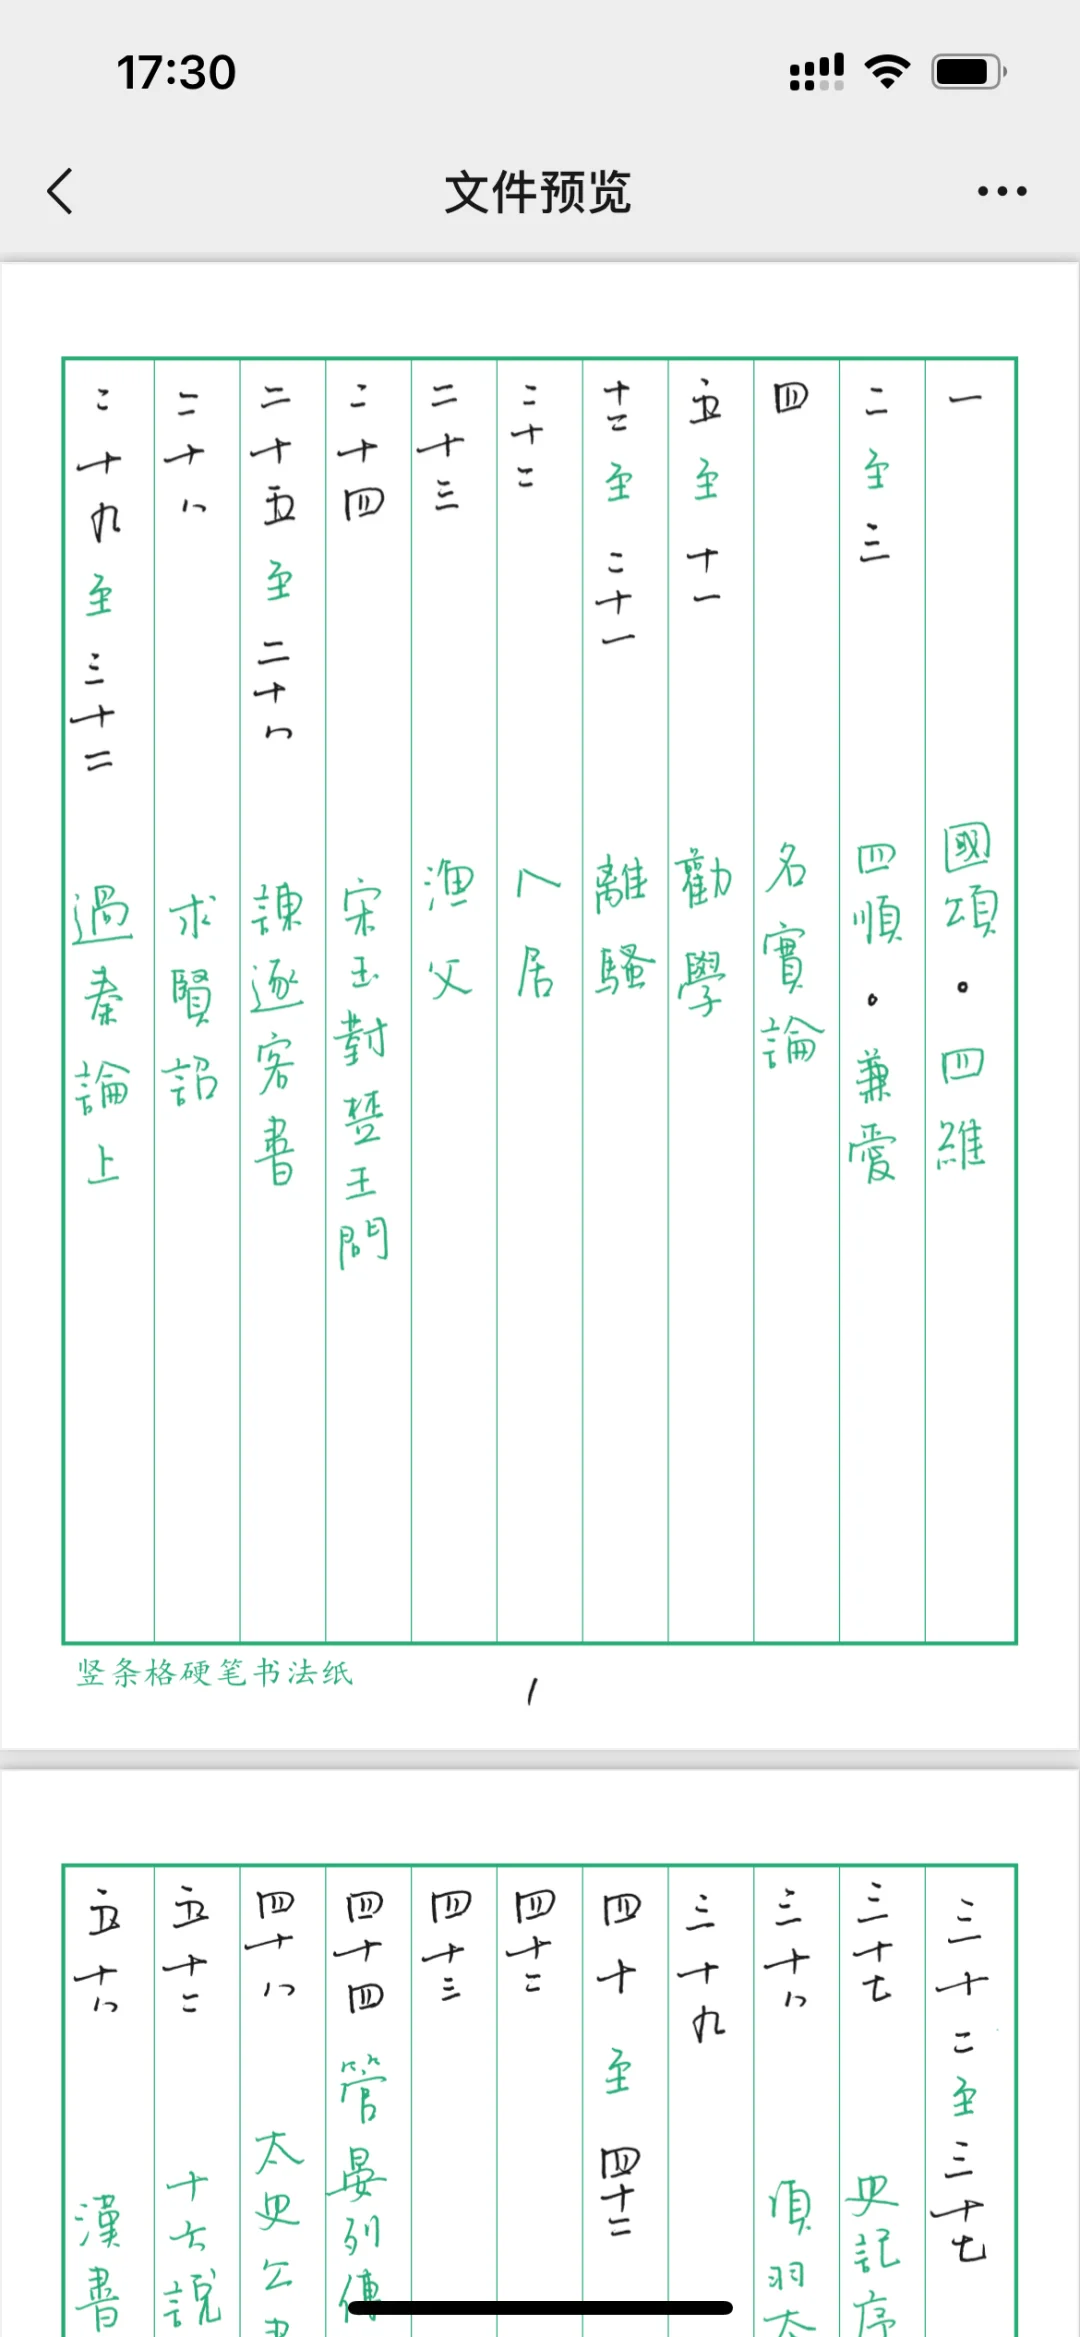 17:30
文件预览
一 國頌。四維
二至三 四順。兼愛
四 名實論
五至十一 勸學
十二至二十一 離騷
二十二 卜居
二十三 漁父
二十四 宋玉對楚王問
二十五至二十八 諫逐客書
二十八 求賢詔
二十九至三十二 過秦論上
竖条格硬笔书法纸
1
三十二至三十七
三十七 史記序
三十八 項羽
三十九
四十至四十二
四十二
四十三
四十四 管晏列傳
四十八 太史公
五十二 十六說
五十八 漢書